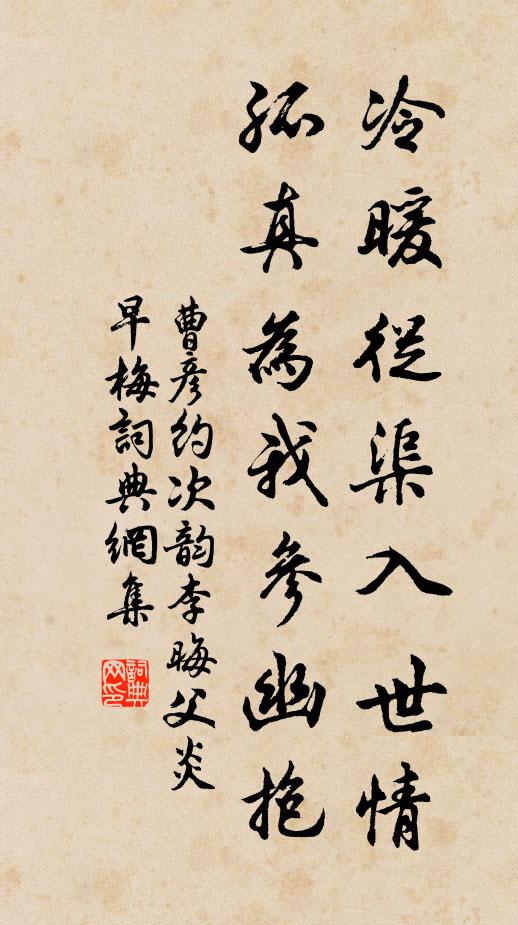 冷暖從渠入世情
孤真為我參幽抱
曹彥約次韵李晦父炎
早梅詞典網集
詞典网印